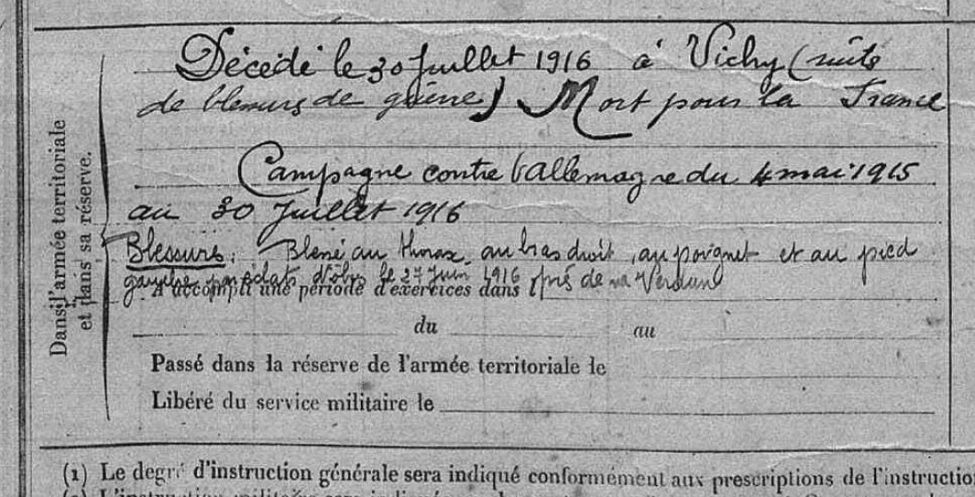 Décédé le 30 Juillet 1916 à Vichy (suite
de blessures de guerre) Mort pour la France
Campagne contre l'allemagne du 4 mai 1915
au 30 Juillet 1916
Blessure : Blessé au thorax, au bras droit, au poignet et au pied
gauche par éclats d'obus le 27 Juin 1916 près de Verdun
Dans l'armée territoriale
et dans sa réserve.
A accompli une période d'exercices dans l
du au
Passé dans la réserve de l'armée territoriale le
Libéré du service militaire le
(1) Le degré d'instruction générale sera indiqué conformément aux prescriptions de l'instructio